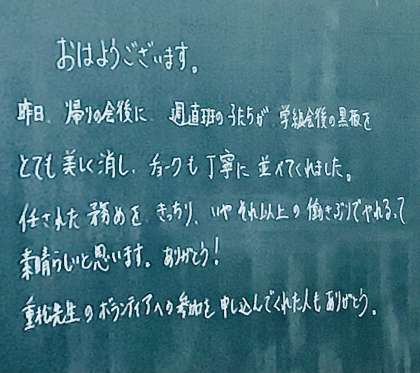 おはようございます。
昨日、帰りの会後に、週直班の子たちが、学級会後の黒板を
とても美しく消し、チョークも丁寧に並べてくれました。
任された務めを、きっちり、いやそれ以上の働きぶりでやれるって
素晴らしいと思います。ありがとう!
重松先生のボランティアへの参加を申し込んでくれた人もありがとう。